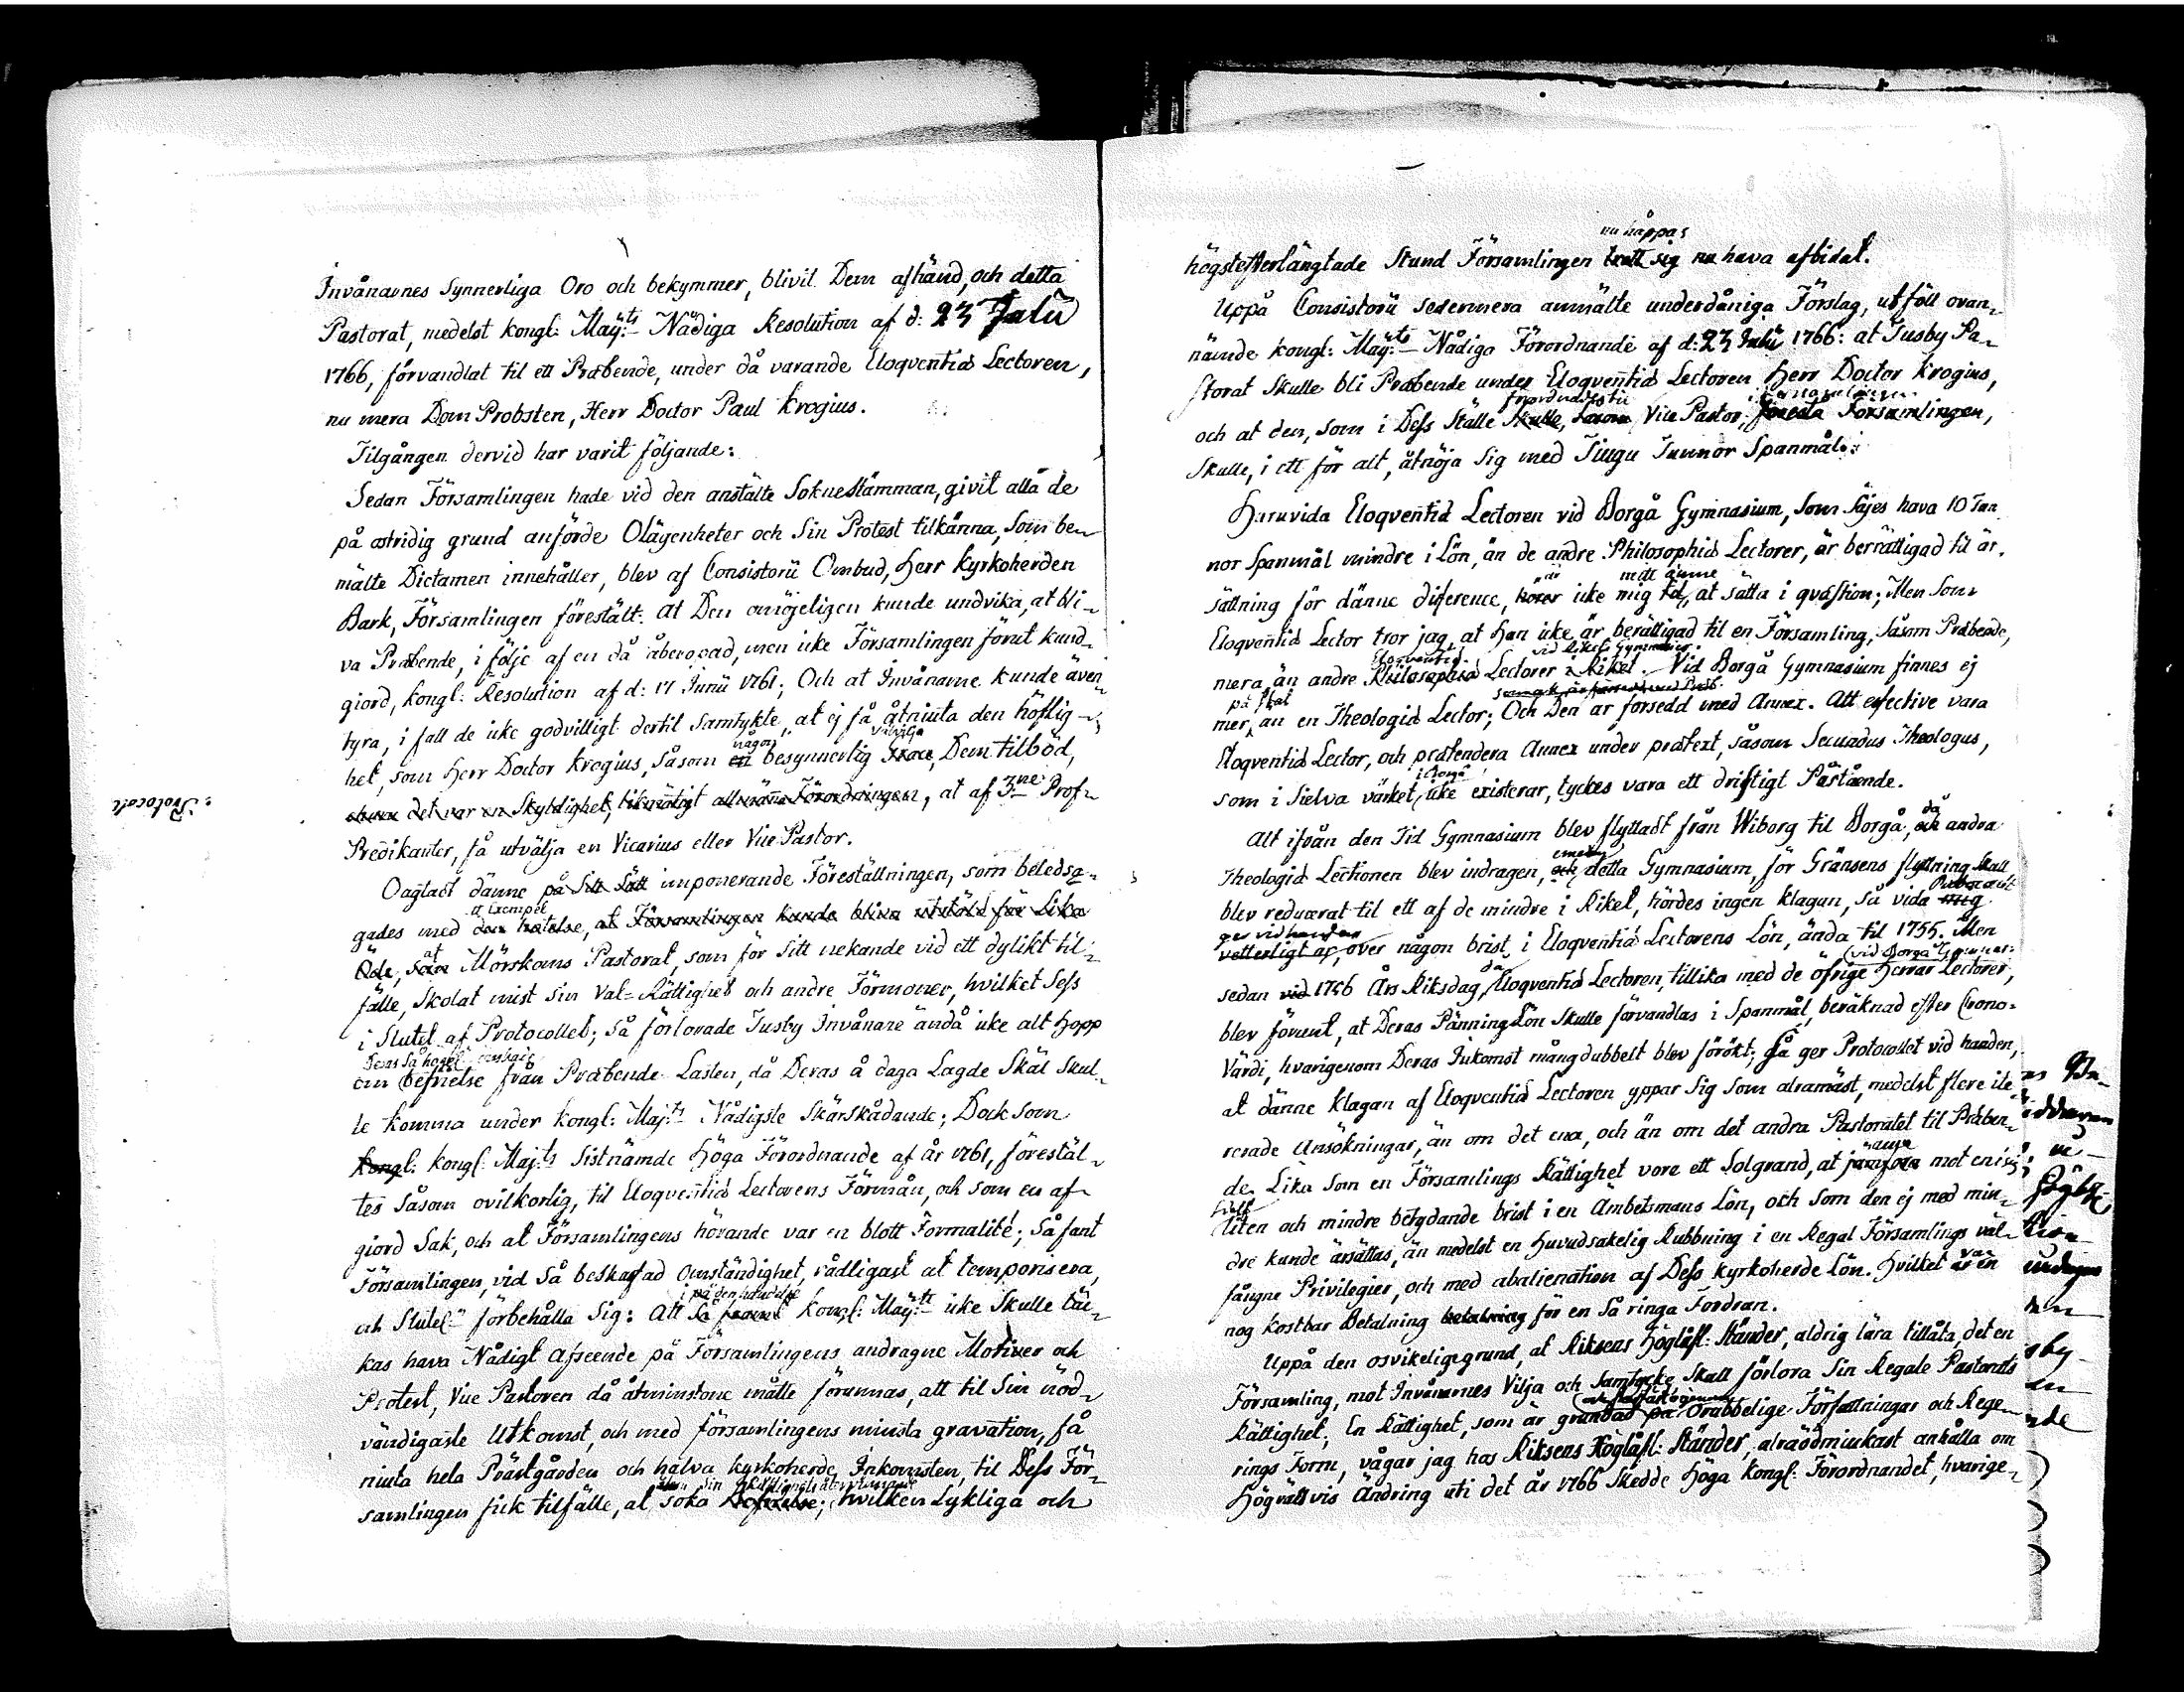 Invånarnes Synnerliga Oro och bekymmer, blivit Dem afhänd, och detta
Pastorat, medelst kongl: Maÿ:ts Nådiga Resolution af d: 23 Julii
1766, förvandlat til ett Præbende, under då varande Eloqventiæ Lectoren,
nu mera Dom Probsten, Herr Doctor Paul Krogius.
Tilgången dervid har varit följande:
Sedan Församlingen hade vid den anstälte Sokne Stämman, givit alla de
på ostridig grund anförde Olägenheter och Sin Protest tilkänna, Som be-
mälte Dictamen innehåller, blev af Consistorii Ombud, Herr Kyrkoherden
Bark, Församlingen förestält: at Den omöjeligen kunde undvika, at bli-
va Præbende, i följe af en då åberopad, men icke Församlingen förut kund-
giord, Kongl: Resolution af d: 17 Junii 1761; Och at Invånarne kunde även-
tyra, i fall de icke godvilligt dertil Samtykte, at ej få åtniuta den höflig-
het, som Herr Doctor Krogius, Såsom någon besynnerlig, Dem tilböd,
det var en Skyldighet, likmätigt allmänna Förordningen, at af 3:ne Prof-
Predikanter, få utvälja en Vicarius eller Vice Pastor.
Oagtadt dänne på Sitt Sätt imponerande Föreställningen, som beledsa-
ett Exempel
gades med den hotelse, at Församlingen kunde bliva utstäld för Lika
Öde, at Mörskoms Pastorat, som för Sitt nekande vid ett dylikt til-
fälle, Skolat mist Sin Val-Rättighet och andre Förmoner, hvilket Sess
i Slutet af Protocollet; Så förlorade Tusby Invånare ändå icke alt Hopp
om befrielse från Præbende Lasten, då Deras å daga Lagde Skäl Skul-
le komma under Kongl: Maj:ts Nådigste Skärskådande; Dock Som
Kongl: Kongl: Maj:ts Sistnämde Höga Förordnande af år 1761, förestäl-
tes Såsom ovilkorlig, til Eloqventiæ Lectorens Förmån, och som en af-
giord Sak, och at Församlingens hörande var en blott Formalité; Så fant
Församlingen, vid Så beskaffad Omständighet, rådligast at temporisera,
i på den händelse
och Slutel: förbehålla Sig: Att Kongl: Maÿ:tt icke Skulle täc-
kas hava Nådigt Afseende på Församlingens andragne Motiver och
Protest, Vice Pastoren då åtminstone måtte förunnas, att til Sin nöd-
vändigaste Utkomst, och med församlingens minsta gravation, få
niuta hela Prästgården och halva kyrkoherde Inkomsten, til Dess För-
samlingen fick tilfälle, at söka; hvilken Lykliga och
: Protocoll
nu håppas
högstefterlängtade Stund Församlingen trott sig nu hava afbidat.
Uppå Consistorii sedermera anmälte underdåniga Förslag, utföll ovan-
nämde kongl: Maÿ:ts Nådiga Förordnande af d: 23 Julii 1766: at Tusby Pa-
storat Skulle bli Præbende under Eloqventiæ Lectoren Herr Doctor Krogius,
och at den, som i Dess Ställe Skulle, såsom Vice Pastor, förestå Församlingen,
Skulle, i ett för alt, åtnöja Sig med Tiugu Tunnor Spanmål:
Huruvida Eloqventiæ Lectoren vid Borgå Gymnasium, Som Säjes hava 10 Tun
nor Spanmål mindre i Lön, än de andre Philosophiæ Lectorer, är berrättigad til är-
mitt ämne
sättning för dänne diference, hörer icke mig til, at sätta i qvæstion; Men Som
Eloqventiæ Lector tror jag, at Han icke är berättigad til en Församling, Såsom Præbende,
vid Rikets Gymnasier.
mera än andre Philosophiæ Lectorer i Riket. Vid Borgå Gymnasium finnes ej
mer, än en Theologiæ Lector; Och Den är försedd med Annex. Att efective vara
Eloqventiæ Lector, och prætendera Annex under prætext, såsom Secundus Theologus,
i Borgå
som i Sielva värket, icke existerar, tyckes vara ett driftigt Påstående.
Alt ifrån den Tid Gymnasium blev flyttadt från Wiborg til Borgå, då andra
Theologiæ Lectionen blev indragen, och detta Gymnasium, för Gränsens flyttning Skull
blev reducerat til ett af de mindre i Riket, hördes ingen klagan, Så vida mig
ger vid handen
vetterligt är, över någon brist, i Eloqventiæ Lectorens Lön, ända til 1755. Men
(vid Borgå
sedan vid 1756 Års Riksdag, Eloqventiæ Lectoren, tillika med de öfrige Herrar Lectorer,
blev förunt, at Deras Pänning Lön Skulle förvandlas i Spanmål, beräknad efter Crono-
Värdi, hvarigenom Deras Inkomst mångdubbelt blev förökt; Så ger Protocollet vid handen,
at dänne klagan af Eloqventiæ Lectoren yppar Sig Som alramäst, medelst flere ite-
rerade Ansökningar, än om det ena, och än om det andra Pastoratet til Præben-
de. Lika Som en Församlings Rättighet vore ett Solgrand, at jämföra mot en
liten och mindre betydande brist i en Ämbetsmans Lön, och som den ej med min-
dre kunde ärsättas, än medelst en Huvudsakelig Rubbning i en Regal Församlings väl-
fångne Privilegier, och med abalienation af Dess kyrkoherde Lön. Hvilket var en
nog kostbar Betalning betalning för en Så ringa Fordran.
Uppå den osvikelige grund, at Riksens Höglåfl: Ständer, aldrig lära tillåta, det en
Församling, mot Invånarnes Vilja och Samtycke Skall förlora Sin Regale Pastorats
Rättighet; En Rättighet, som är grundad på Orubbelige Författningar och Rege-
rings Form, vågar jag hos Riksens Höglåfl: Ständer, alraödmiukast anhålla om
Högrättvis Ändring uti det år 1766 Skedde Höga Kongl: Förordnandet, hvarige-